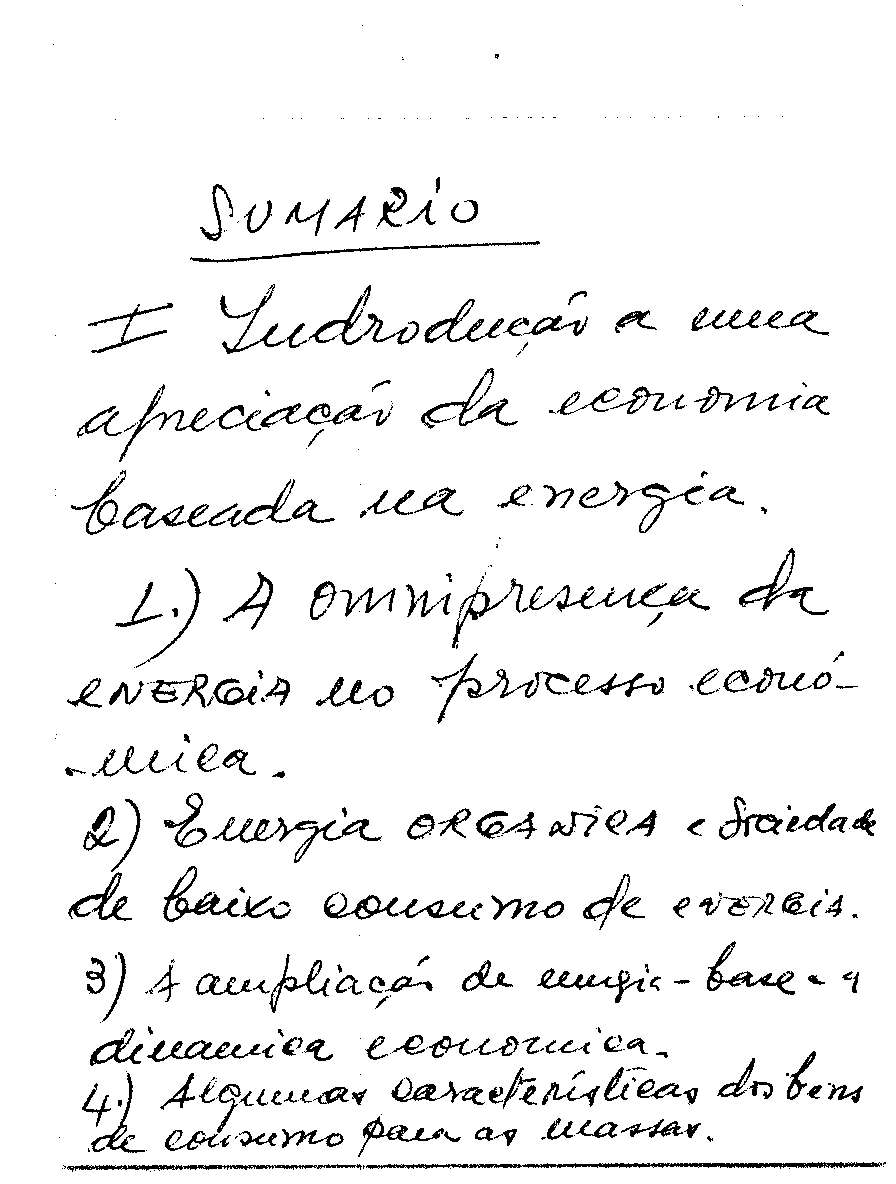 SUMARIO
I Introdução a uma
apreciação da economia
baseada na energia.
1.) A omnipresença da
ENERGIA no processo econó-
-mica.
2) Energia ORGANICA e Sociedade
de baixo consumo de ENERGIA.
3) A ampliação de energia-base e a
dinamica economica.
4.) Algumas características dos bens
de consumo para as massas.